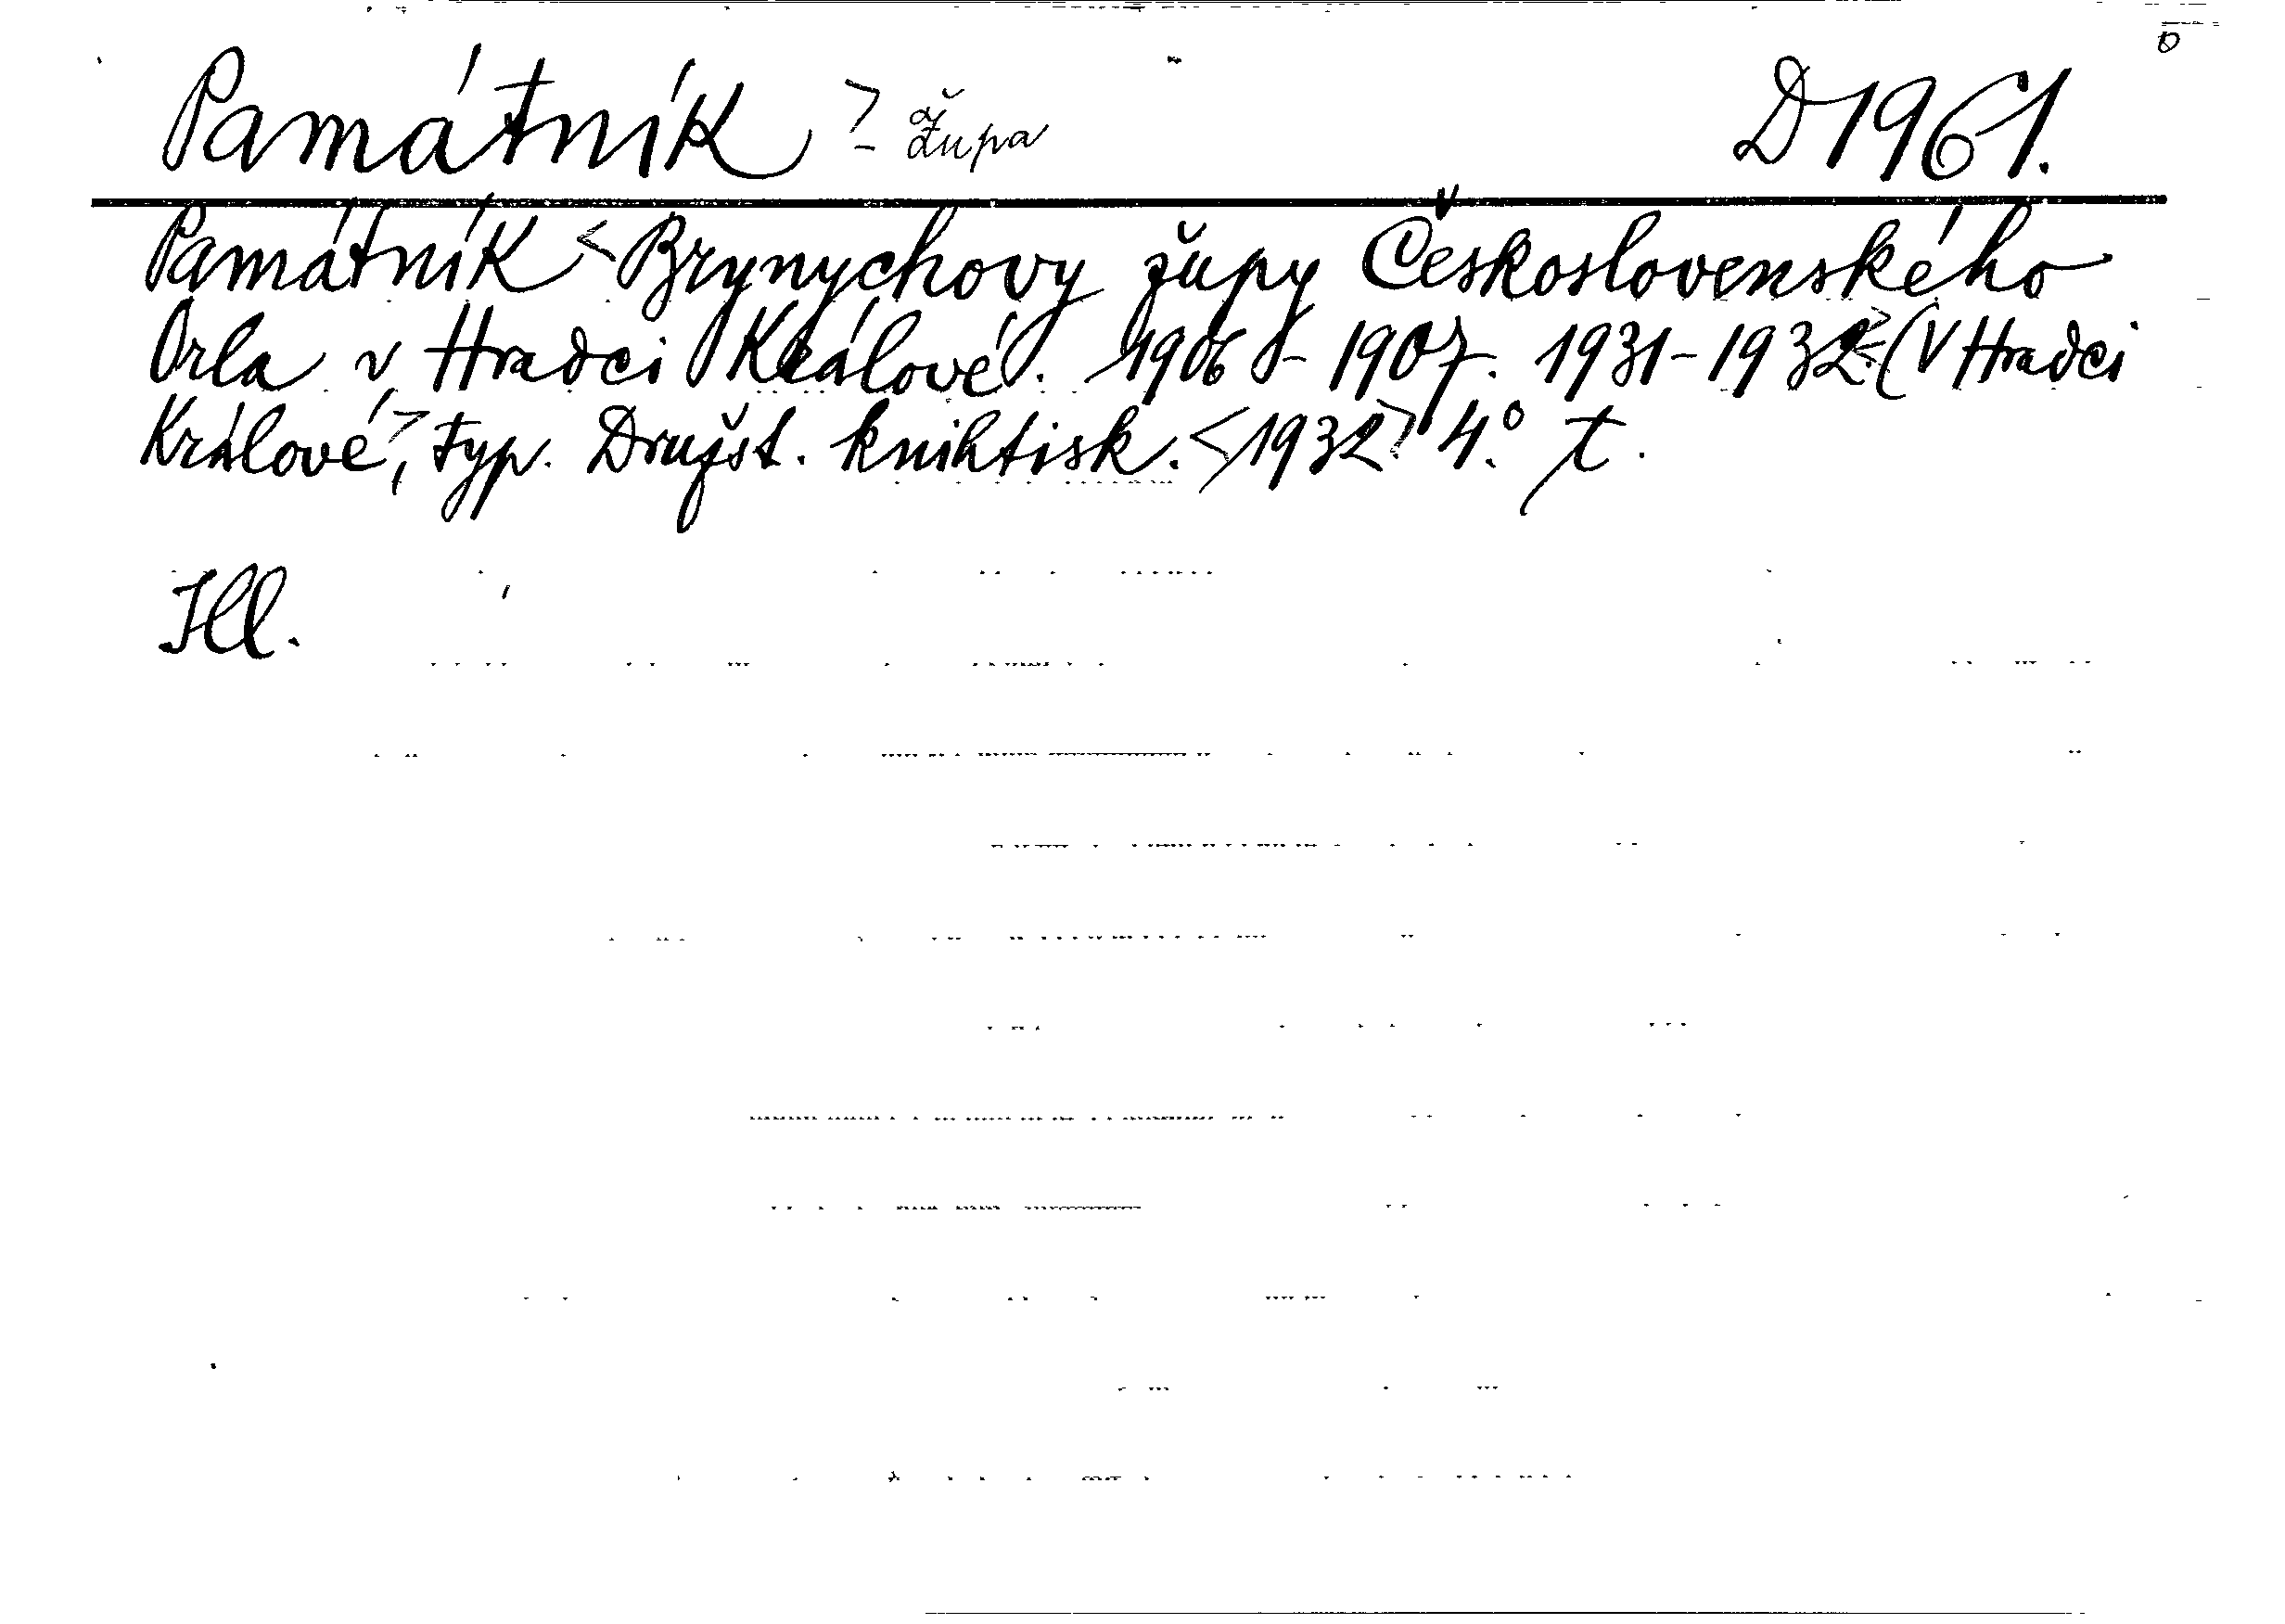 Památník > - župa D 1961.
Památník < Brynychovy župy Československého
Orla v Hradci Králové. 1906 - 1907. 1931 - 1932.> < (V Hradci
Králové>, typ. Družst. knihtisk. <1932> 4.° t.
Ill.